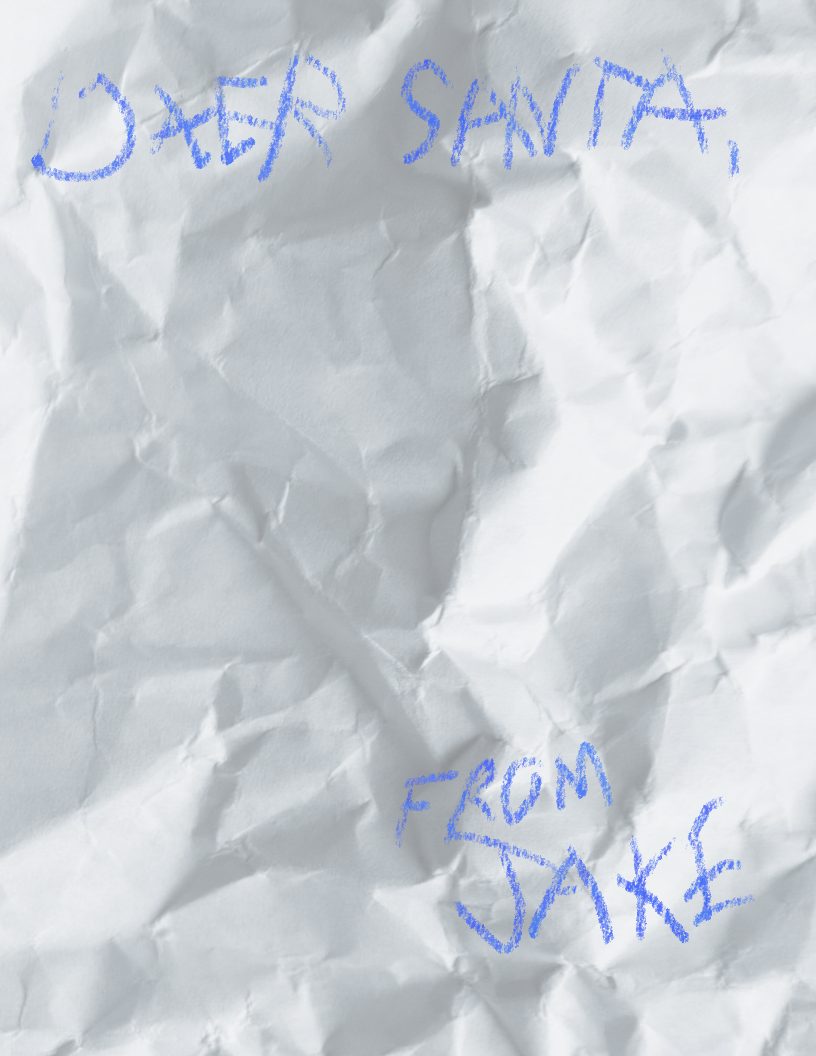 DAER SANTA,
FROM
JAKE